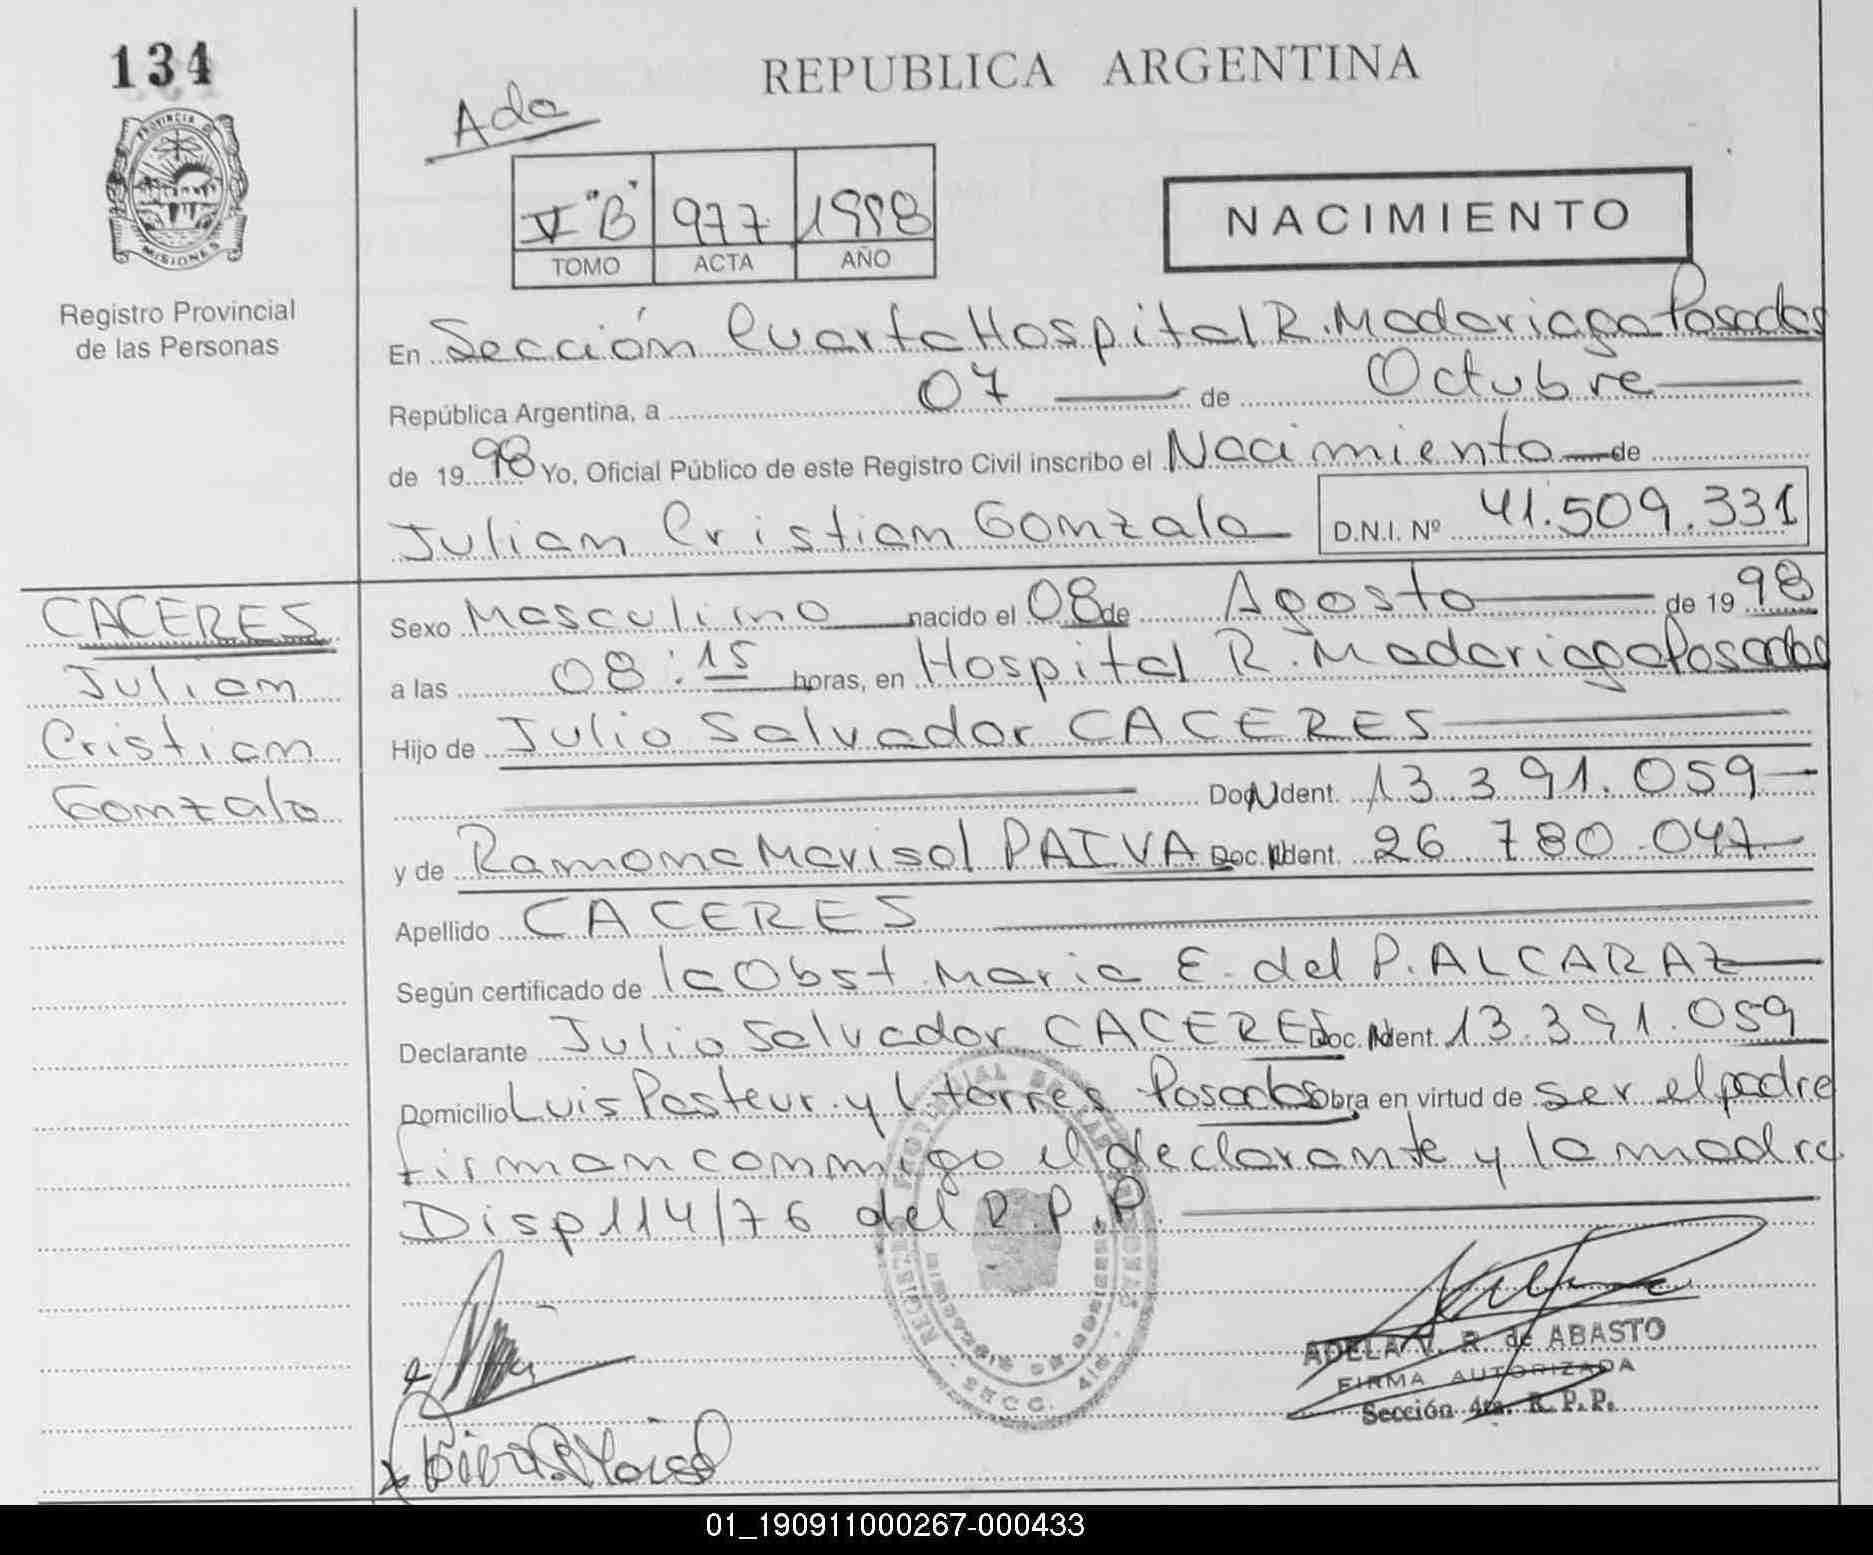 134
REPUBLICA ARGENTINA
Ada
PROVINCIA DE
MISIONES
V "B" 977 1998
TOMO ACTA AÑO
NACIMIENTO
Registro Provincial
de las Personas
En Sección Cuarta Hospital R. Madariaga Posadas
República Argentina, a 07 de Octubre
de 1998 Yo, Oficial Público de este Registro Civil inscribo el Nacimiento de
Julian Cristian Gonzalo D.N.I. Nº 41.509.331
CACERES
Julian
Cristian
Gonzalo
Sexo Masculino nacido el 08 de Agosto de 1998
a las 08:15 horas, en Hospital R. Madariaga Posadas
Hijo de Julio Salvador CACERES
Doc. N Ident. 13 391.059
y de Ramona Marisol PAIVA Doc. N Ident. 26 780.047
Apellido CACERES
Según certificado de la Obst. Maria E. del P. ALCARAZ
Declarante Julio Salvador CACERES Doc. N Ident. 13.391.059
Domicilio Luis Pasteur y L torres Posadas Obra en virtud de ser el padre
firman conmigo el declarante y la madre
Disp 114/76 del R.P.P.
ADELA V. R. de ABASTO
FIRMA AUTORIZADA
Sección 4ta. R. P. P.
01_190911000267-000433